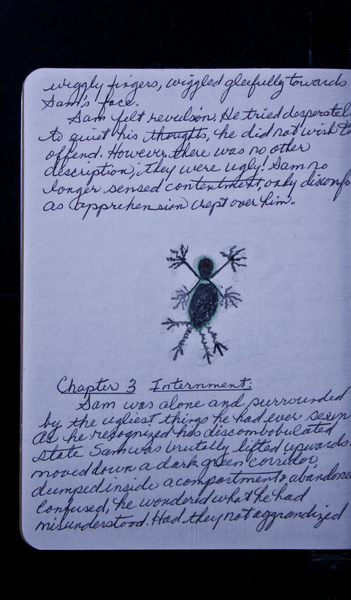 wiggly fingers, wiggled gleifully towards
Sam's face.
Sam felt revulsion. He tried desperately
to quiet his thougts, he did not wish to
offend. However there was no other
description; they were ugly! Sam no
longer sensed contentment, only discomfo
as apprehension crept over him.
Chapter 3 Internment:
Sam was alone and surrounded
by the ugliest things he had ever seen
As he recognized his discombobulated
state Sam was brutally lifted upwards.
moved down a dark green corridor,
dumped inside a compartment & abandoned
Confused, he wondered what he had
misunderstood. Had they not aggrandized